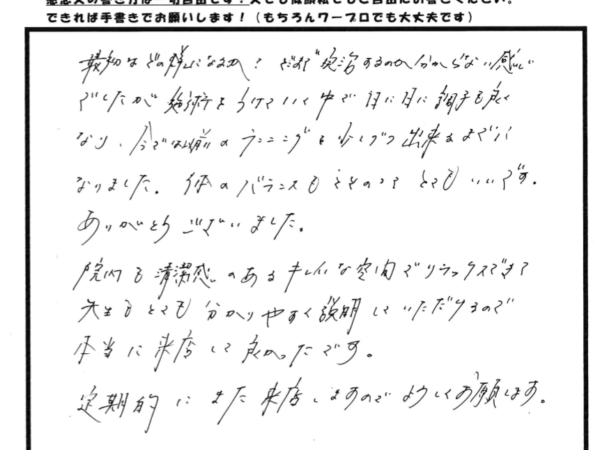 できれば手書きでお願いします！（もちろんワープロでも大丈夫です）
最初はどの様になるか？どこまで完治するのか分からない感じ
でしたが 施術をうけていく中で 日に日に調子も良く
なり、今では以前のランニングも少しずつ出来るまでに
なりました。体のバランスもととのって とてもいいです。
ありがとうございました。
院内も清潔感のあるキレイな空間でリラックスできて
先生もとても分かりやすく説明していただけるので
本当に来店して良かったです。
定期的にまた来店しますのでよろしくお願します。